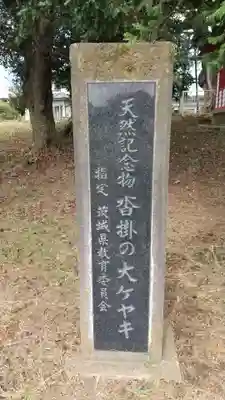 天然記念物 沓掛の大ケヤキ
指定 茨城県教育委員会